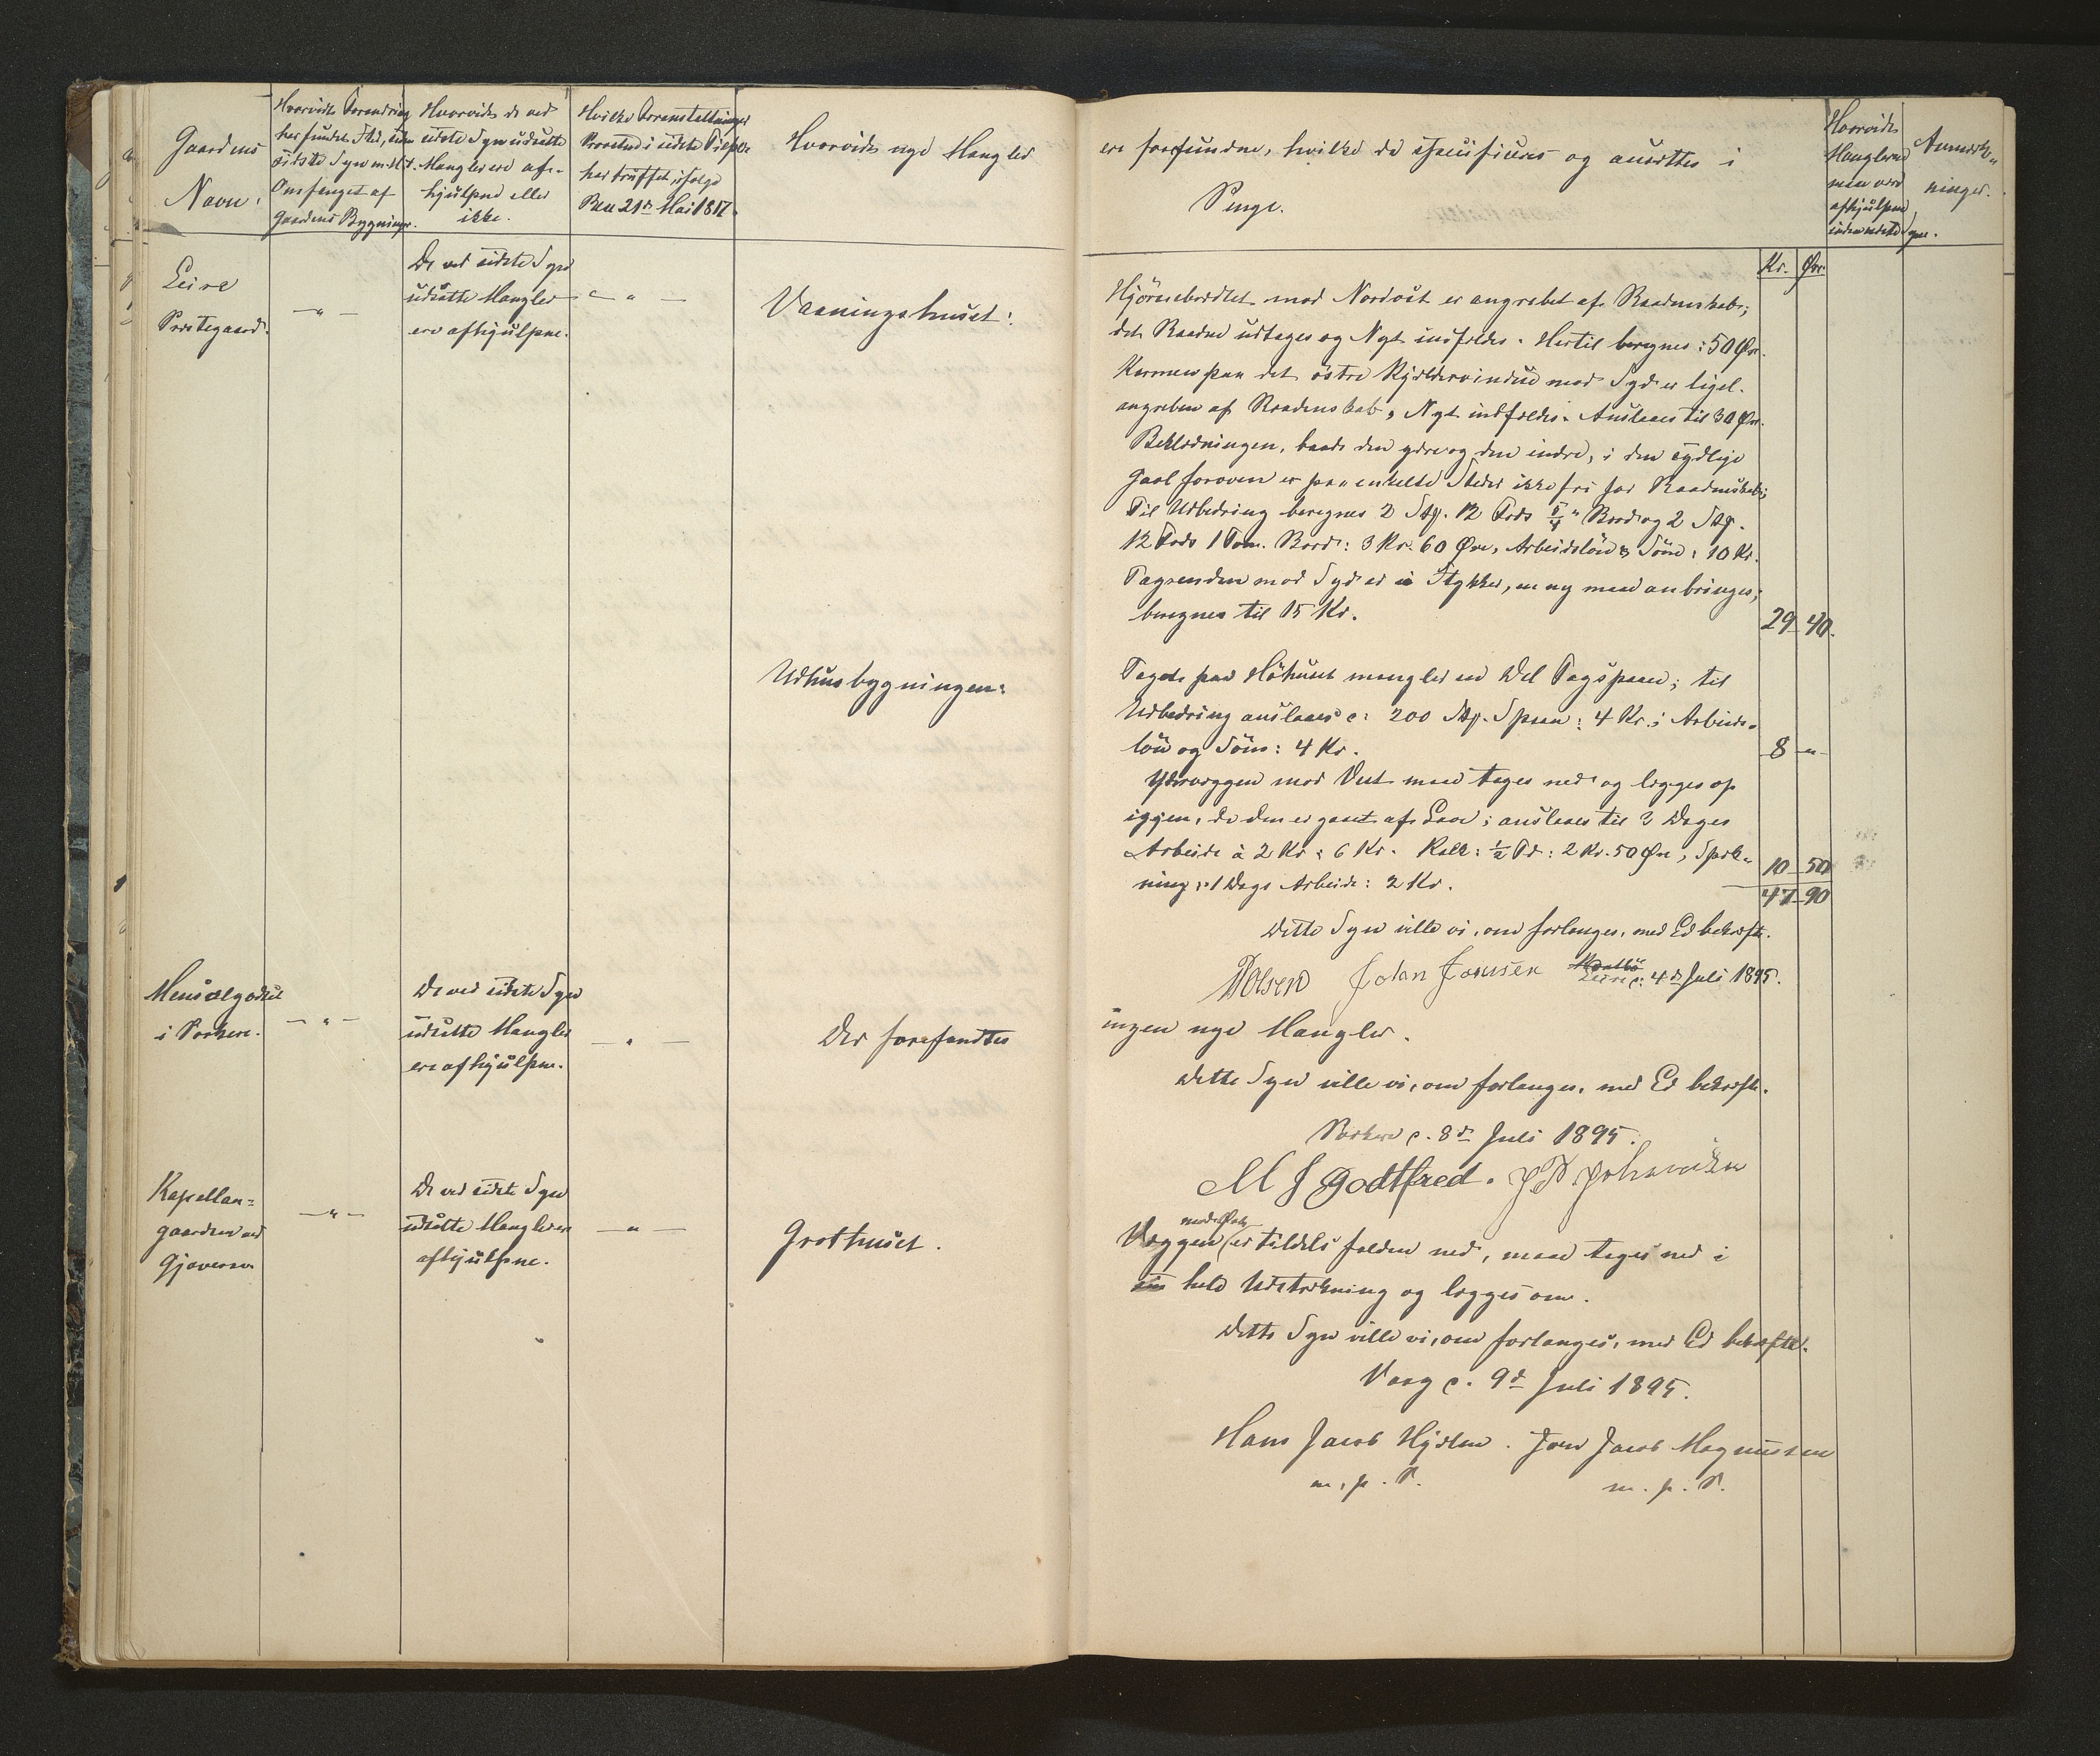 Gaardens
Navn.
Hvorvidt Forandring
har fundet Sted, siden
sidste Syn m. H. t.
Omfanget af
Gaardens Bygninger.
Hvorvidt de ved
sidste Syn udsatte
Mangler ere af-
hjulpne eller
ikke.
Hvilke Foranstaltninger
Provsten i sidste Tilfælde
har truffet, ifølge
Res. 21de Mai 1817.
Hvorvidt nye Mangler
ere forefundne, hvilke da specificeres og ansættes i
Penge.
Hvorvidt
Manglerne
maa være
afhjulpne
inden næste Syn.
Anmærk-
ninger.
Kr. Øre
Leire
Præstegaard.
— " —
De ved sidste Syn
udsatte Mangler
ere afhjulpne.
— " —
Vaaningshuset:
Hjørnebrædtet mod Nordost er angrebet af Raadenskab;
det Raadne udtages og Nyt indfældes. Hertil beregnes: 50 Øre.
Karmen paa det østre Kjældervindue mod Syd er ligel.
angreben af Raadenskab, Nyt indfældes. Anslaaes til 30 Øre.
Beklædningen, baade den ydre og den indre, i den sydlige
Gavl foroven er paa enkelte Steder ikke fri for Raadenskab;
Til Udbedring beregnes 2 Stk. 12 Fods 5/4" Bord og 2 Stk.
12 Fods 1 Tom. Bord: 3 Kr. 60 Øre, Arbeidsløn & Søm: 10 Kr.
Tagrenden mod Syd er i Stykker, en ny maa anbringes;
beregnes til 15 Kr.
29 40.
Udhusbygningen:
Taget paa Høhuset mangler en Del Tagspaan; til
Udbedring anslaaes c: 200 Stk. Spaan: 4 Kr.; Arbeids-
løn og Søm: 4 Kr.
8 "
Ydervæggen mod Vest maa tages ned og lægges op
igjen, da den er gaaet af Lave; anslaaes til 3 Dages
Arbeide à 2 Kr: 6 Kr. Kalk: ½ Td: 2 Kr. 50 Øre, Spræk-
ning: 1 Dags Arbeide: 2 Kr.
10 50
47 90
Dette Syn ville vi, om forlanges, med Ed bekræfte.
Olsen Johan Joensen Leire d: 4de Juli 1895.
Mensalgodset
i Porkere.
— " —
De ved sidste Syn
udsatte Mangler
ere afhjulpne.
— " —
Der forefandtes
ingen nye Mangler.
Dette Syn ville vi, om forlanges, med Ed bekræfte.
Porkere d. 8de Juli 1895.
M J Godtfred. J P Johannesen
Kapellan-
gaarden ved
Gjoveraa
— " —
De ved sidste Syn
udsatte Mangler ere
afhjulpne.
— " —
Grothuset.
mod Øst
Væggen er tildels falden ned, maa tages ned i
sin hele Udstrækning og lægges om.
Dette Syn ville vi, om forlanges, med Ed bekræfte.
Vaag d. 9de Juli 1895.
Hans Jacob Hjælm. Joen Jacob Magnussen
m. p. P. m. p. P.